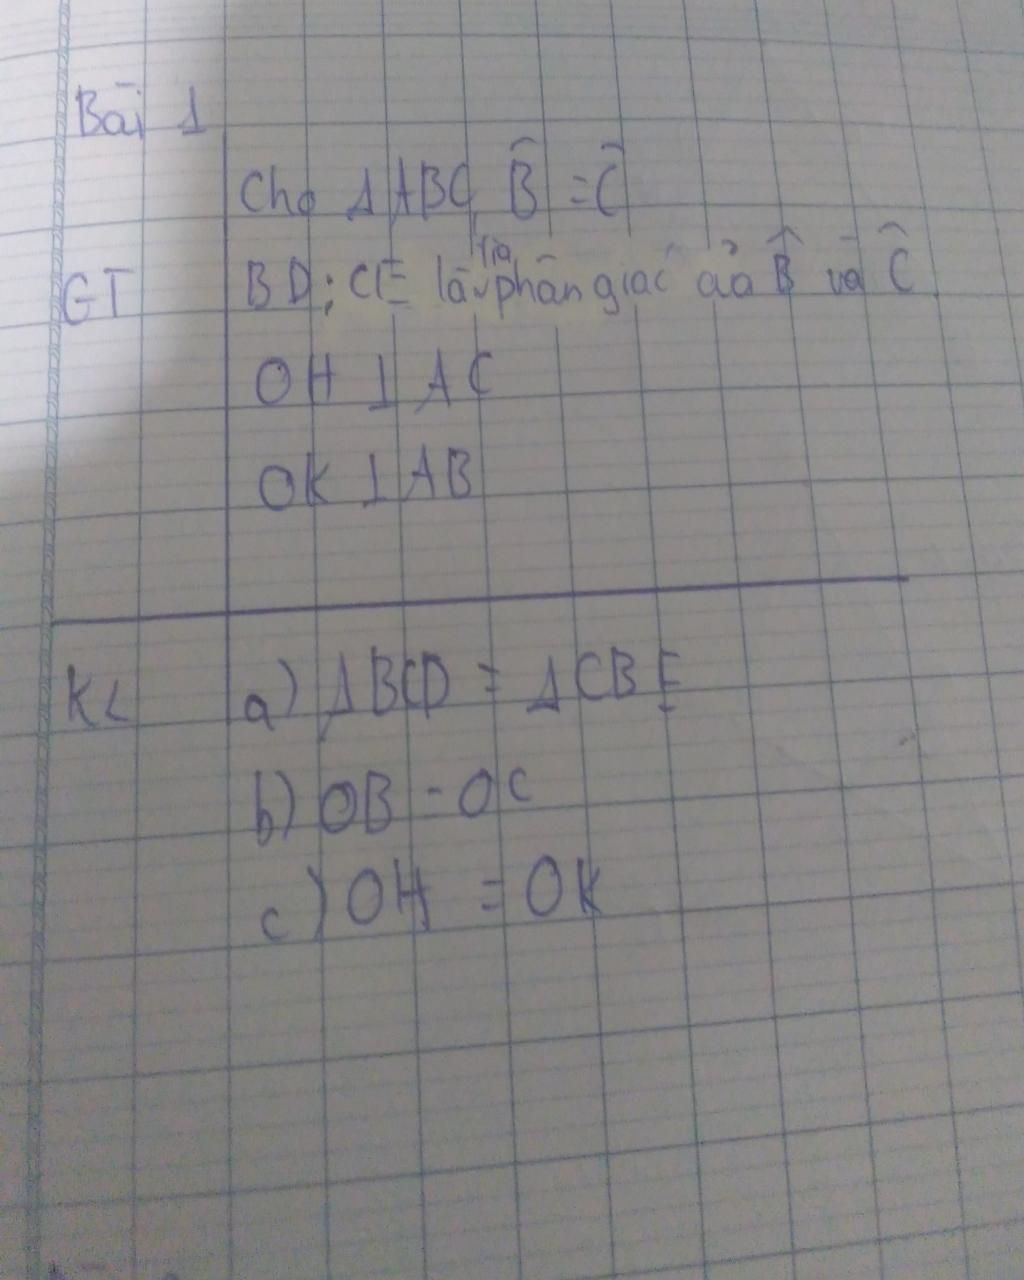 Bài 1
Cho ΔABC, B̂ = Ĉ
GT BD; CE là tia phân giác của B̂ và Ĉ
OH ⊥ AC
OK ⊥ AB
KL a) ΔBCD = ΔCBE
b) OB = OC
c) OH = OK